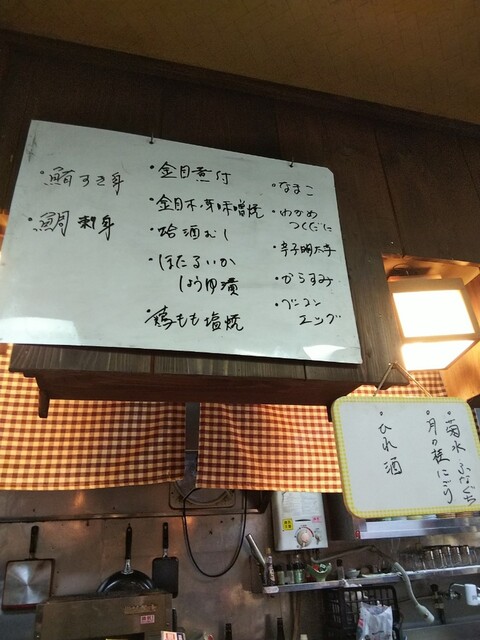 ・鮪すき身
・鯛刺身
・金目煮付
・金目木ノ芽味噌焼
・蛤酒むし
・ほたるいか
しょうゆ漬
・鶏もも塩焼
・なまこ
・わかめ
つくだに
・辛子明太子
・からすみ
・ベーコン
エッグ
・菊水ふなぐち
・月の桂にごり
・ひれ酒